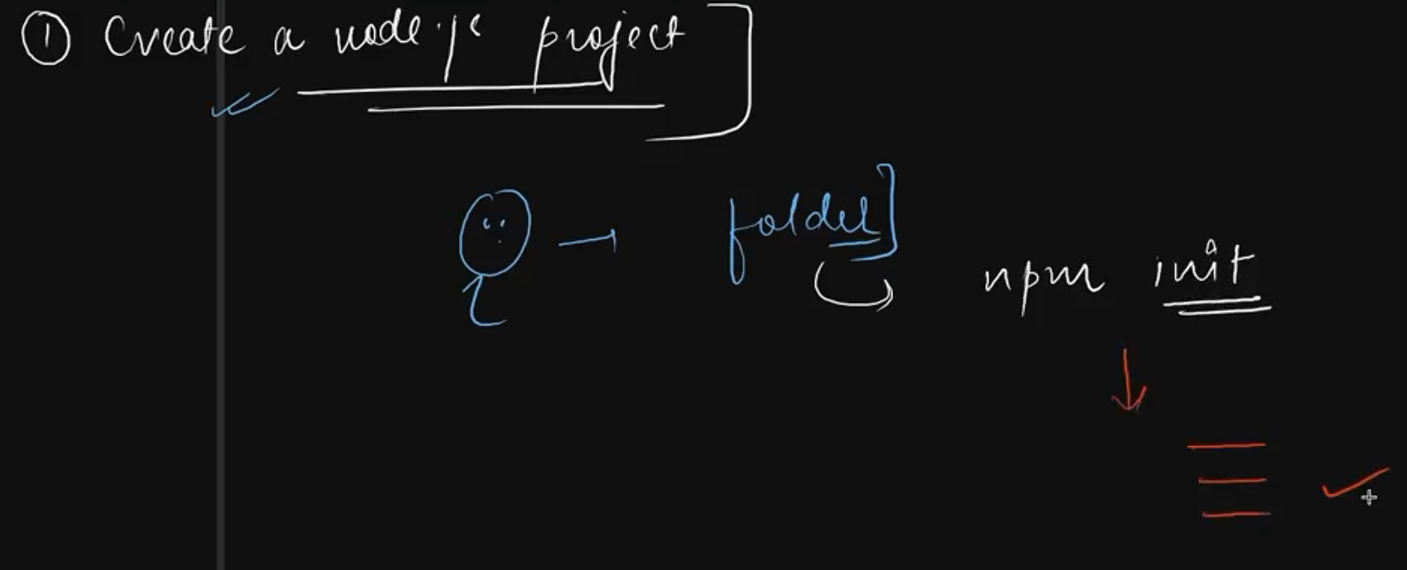 ① Create a node.js project
folder]
npm init